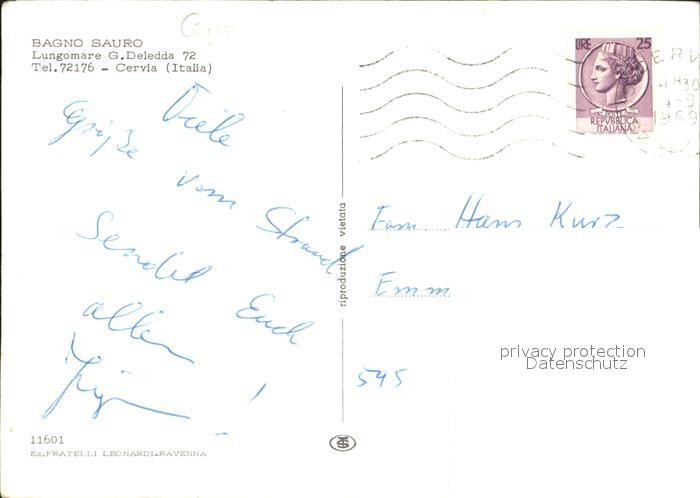 BAGNO SAURO
Lungomare G.Deledda 72
Tel.72176 - Cervia (Italia)
Viele
Grüße
vom Strand
sendet Euch
allen
!
11601
Ed.FRATELLI LEONARDI-RAVENNA
riproduzione vietata
LIRE 25
POSTE
REPVBBLICA
ITALIANA
1969
Fam Hans Kurz
Emm
545
privacy protection
Datenschutz